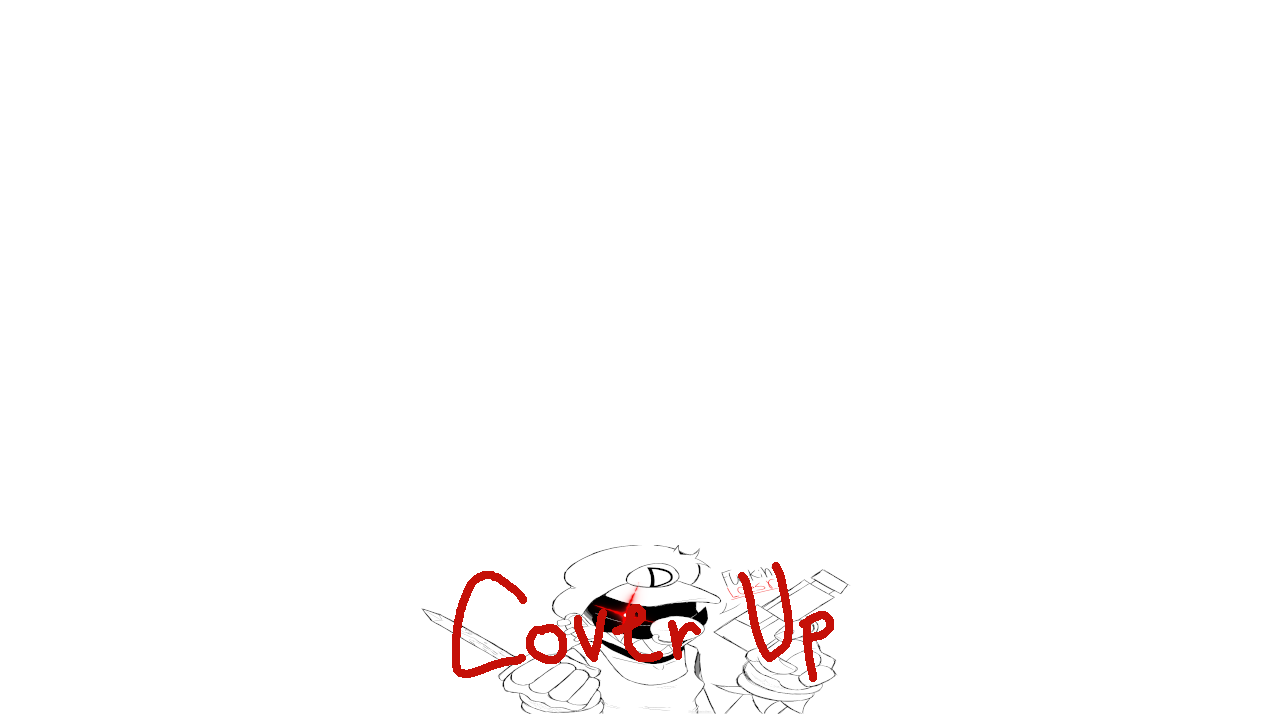 D
Cover Up